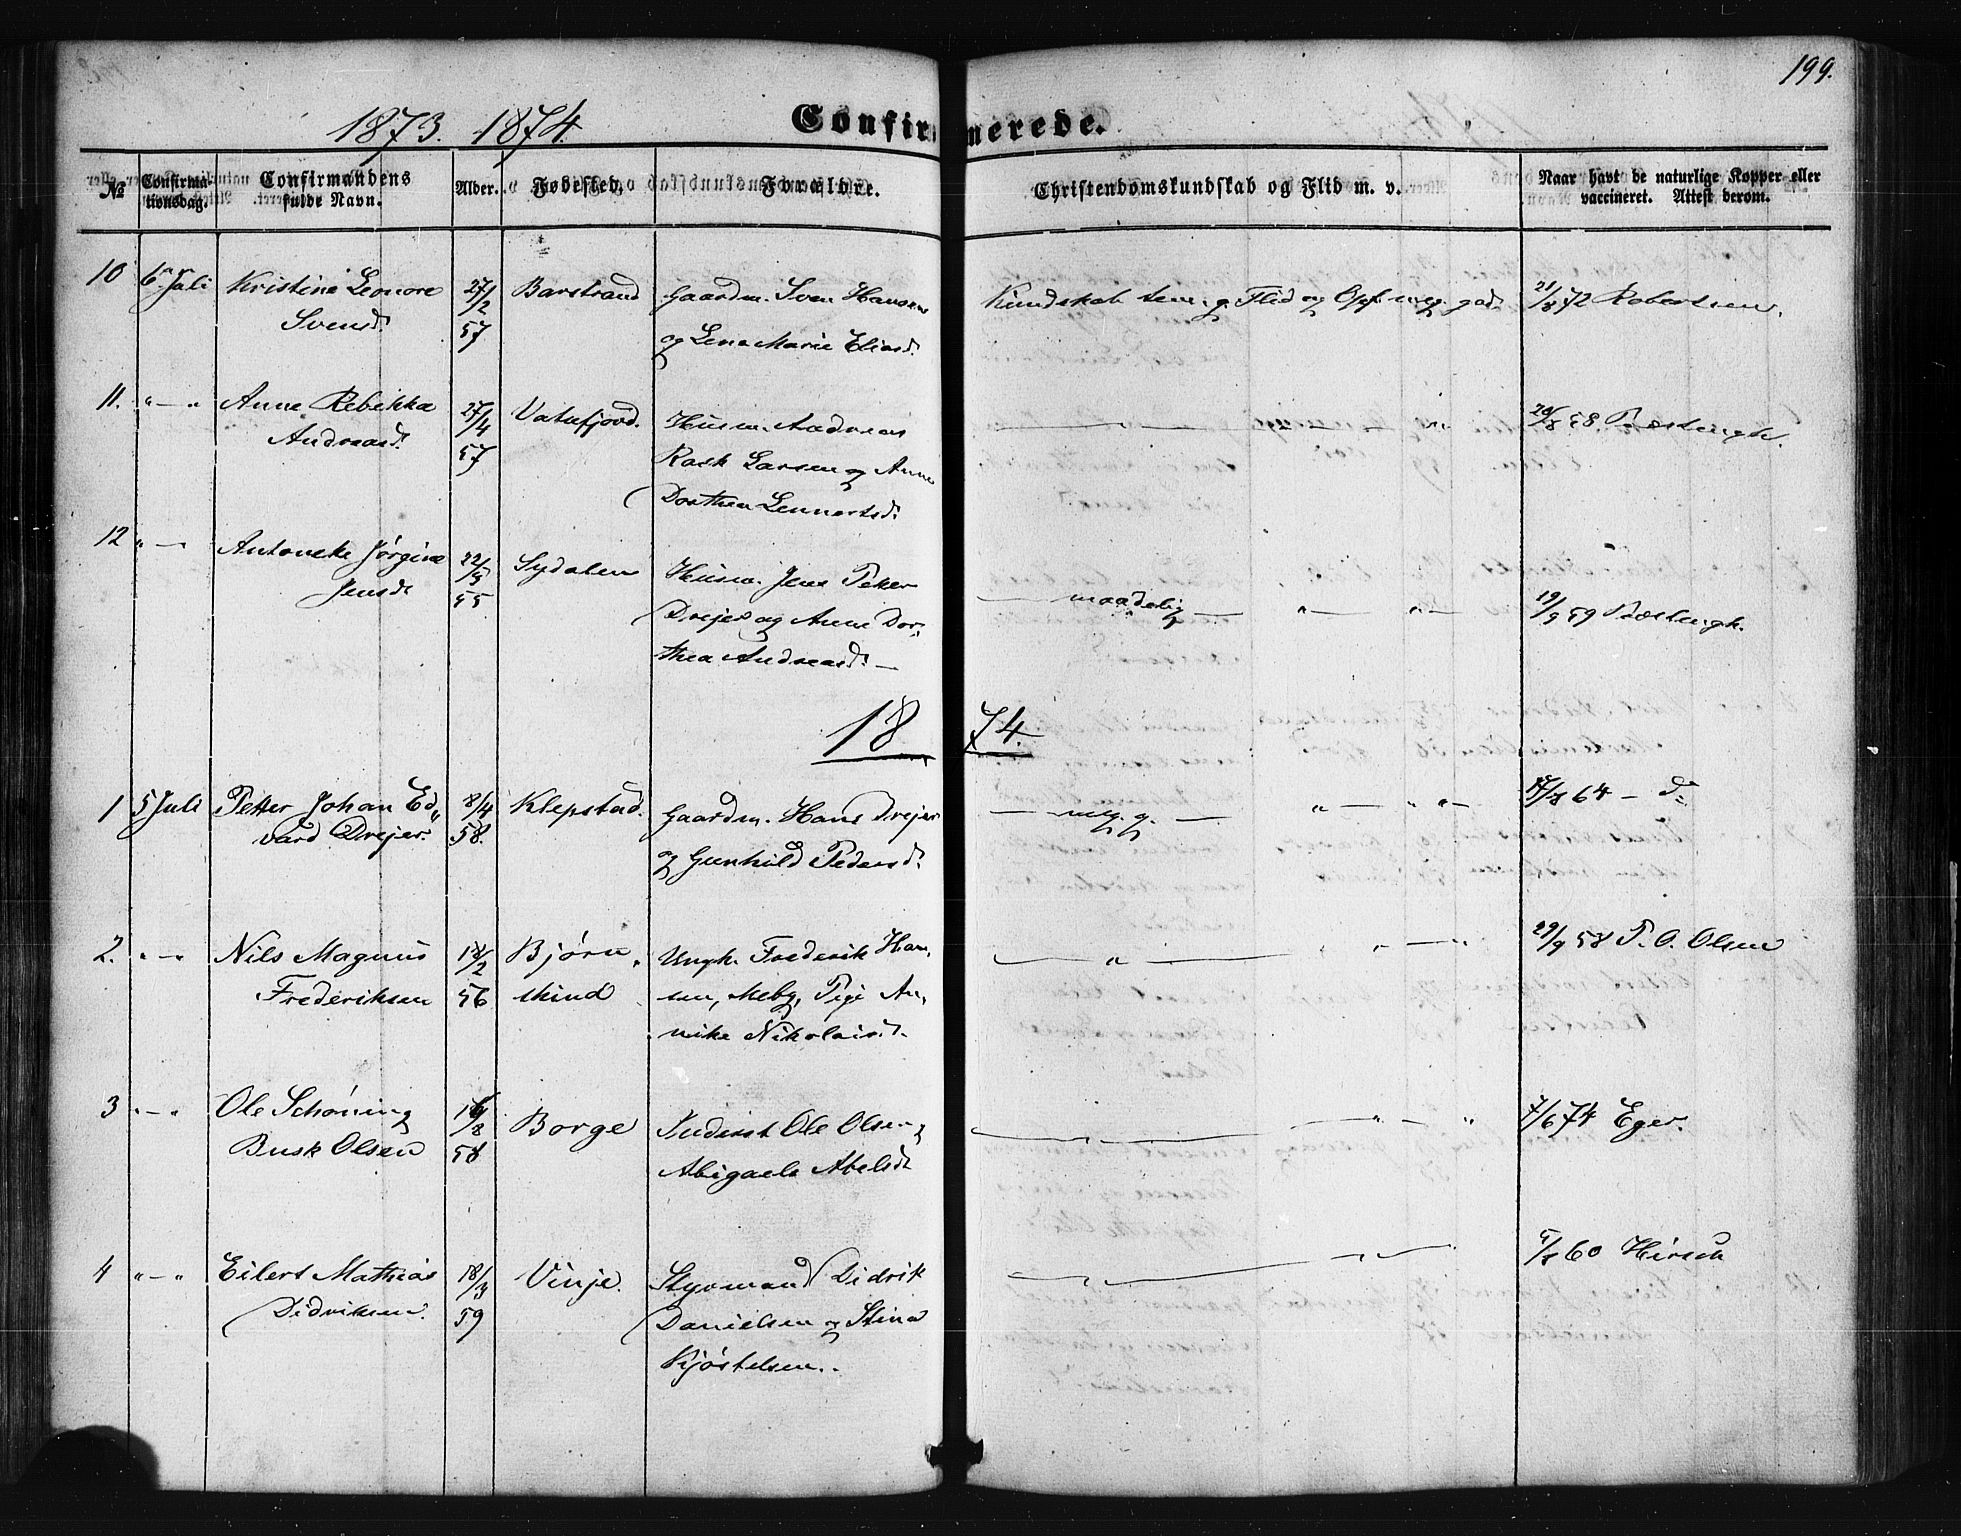 199.
1873. 1874.
Confirmerede.
№
Confirmationsdag.
Confirmandens fulde Navn.
Alder.
Fødested.
Forældre.
Christendomskundskab og Flid m. v.
Naar havt de naturlige Kopper eller vaccineret. Attest derom.
10 6 Juli Kristine Leonore 27/2 Barstrand Gaardm. Sven Hansen Kundskab tem. g. Flid og Opf. meg. god. 21/8 72 Robertsen.
Svensd. 57 og Lene Marie Eliasd.
11. " — " Anne Rebekka 27/4 Vatnfjord. Husm. Andreas " 20/8 58 Præstengk.
Andreasd. 57 Rask Larsen og Anne
Dorthea Lennertsd.
12 " — Antoneke Jørgine 22/5 Sydalen Husm. Jens Petter — maadelig — " — " — 19/9 59 Præstengk.
Jensd. 55 Drejer og Anne Dor-
thea Andreasd. —
1874.
1 5 Juli Petter Johan Ed- 8/4 Klepstad. Gaardm. Hans Drejer — meg. g. — " — " " — 17/8 64 — d:
vard Drejer. 58. og Gunhild Pedersd.
2. " — " Nils Magnus 18/2 Bjørn- Ungk. Frederik Han- — " — " — " 29/9 58 P. O. Olsen
Frederiksen 56 skind sen, Meby, Pige An-
nike Nikolaisd.
3 " — " Ole Schøning 19/8 Borge Inderst Ole Olsen og — " — " — " 7/6 74 Eger.
Busk Olsen 58 Abigaele Abelsd.
4 " — " Eilert Mathias 18/3 Vinje. Styrmand Didrik — " — " — 60 Hirsch
Didriksen. 59 Danielsen og Stina
Kjøstelsen.